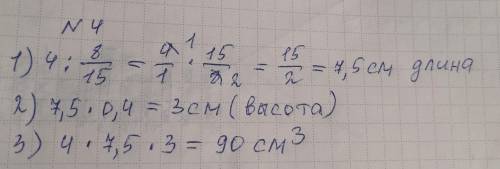 N 4
1) 4 : 8/15 = 4/1 · 15/8 = 15/2 = 7,5 см длина
2) 7,5 · 0,4 = 3 см (высота)
3) 4 · 7,5 · 3 = 90 см³